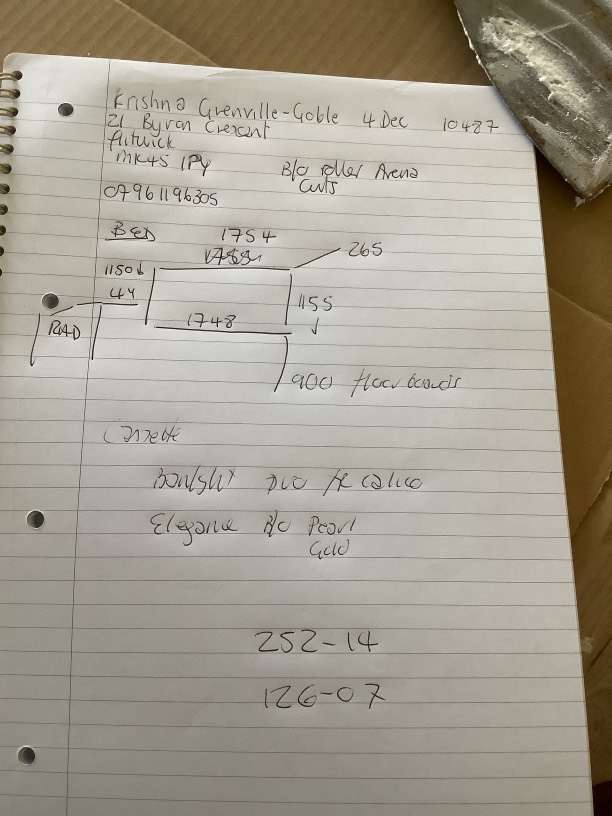 Krishna Grenville-Goble 4 Dec 10487
21 Byron Crescent
flitwick
MK45 1PY B/O roller Arena
07961196305
BED 1754
265
1150
44
1155
RAD 1748
900 floor boards
Cassette
calico
Elegance B/O Pearl
Gold
252-14
126-07